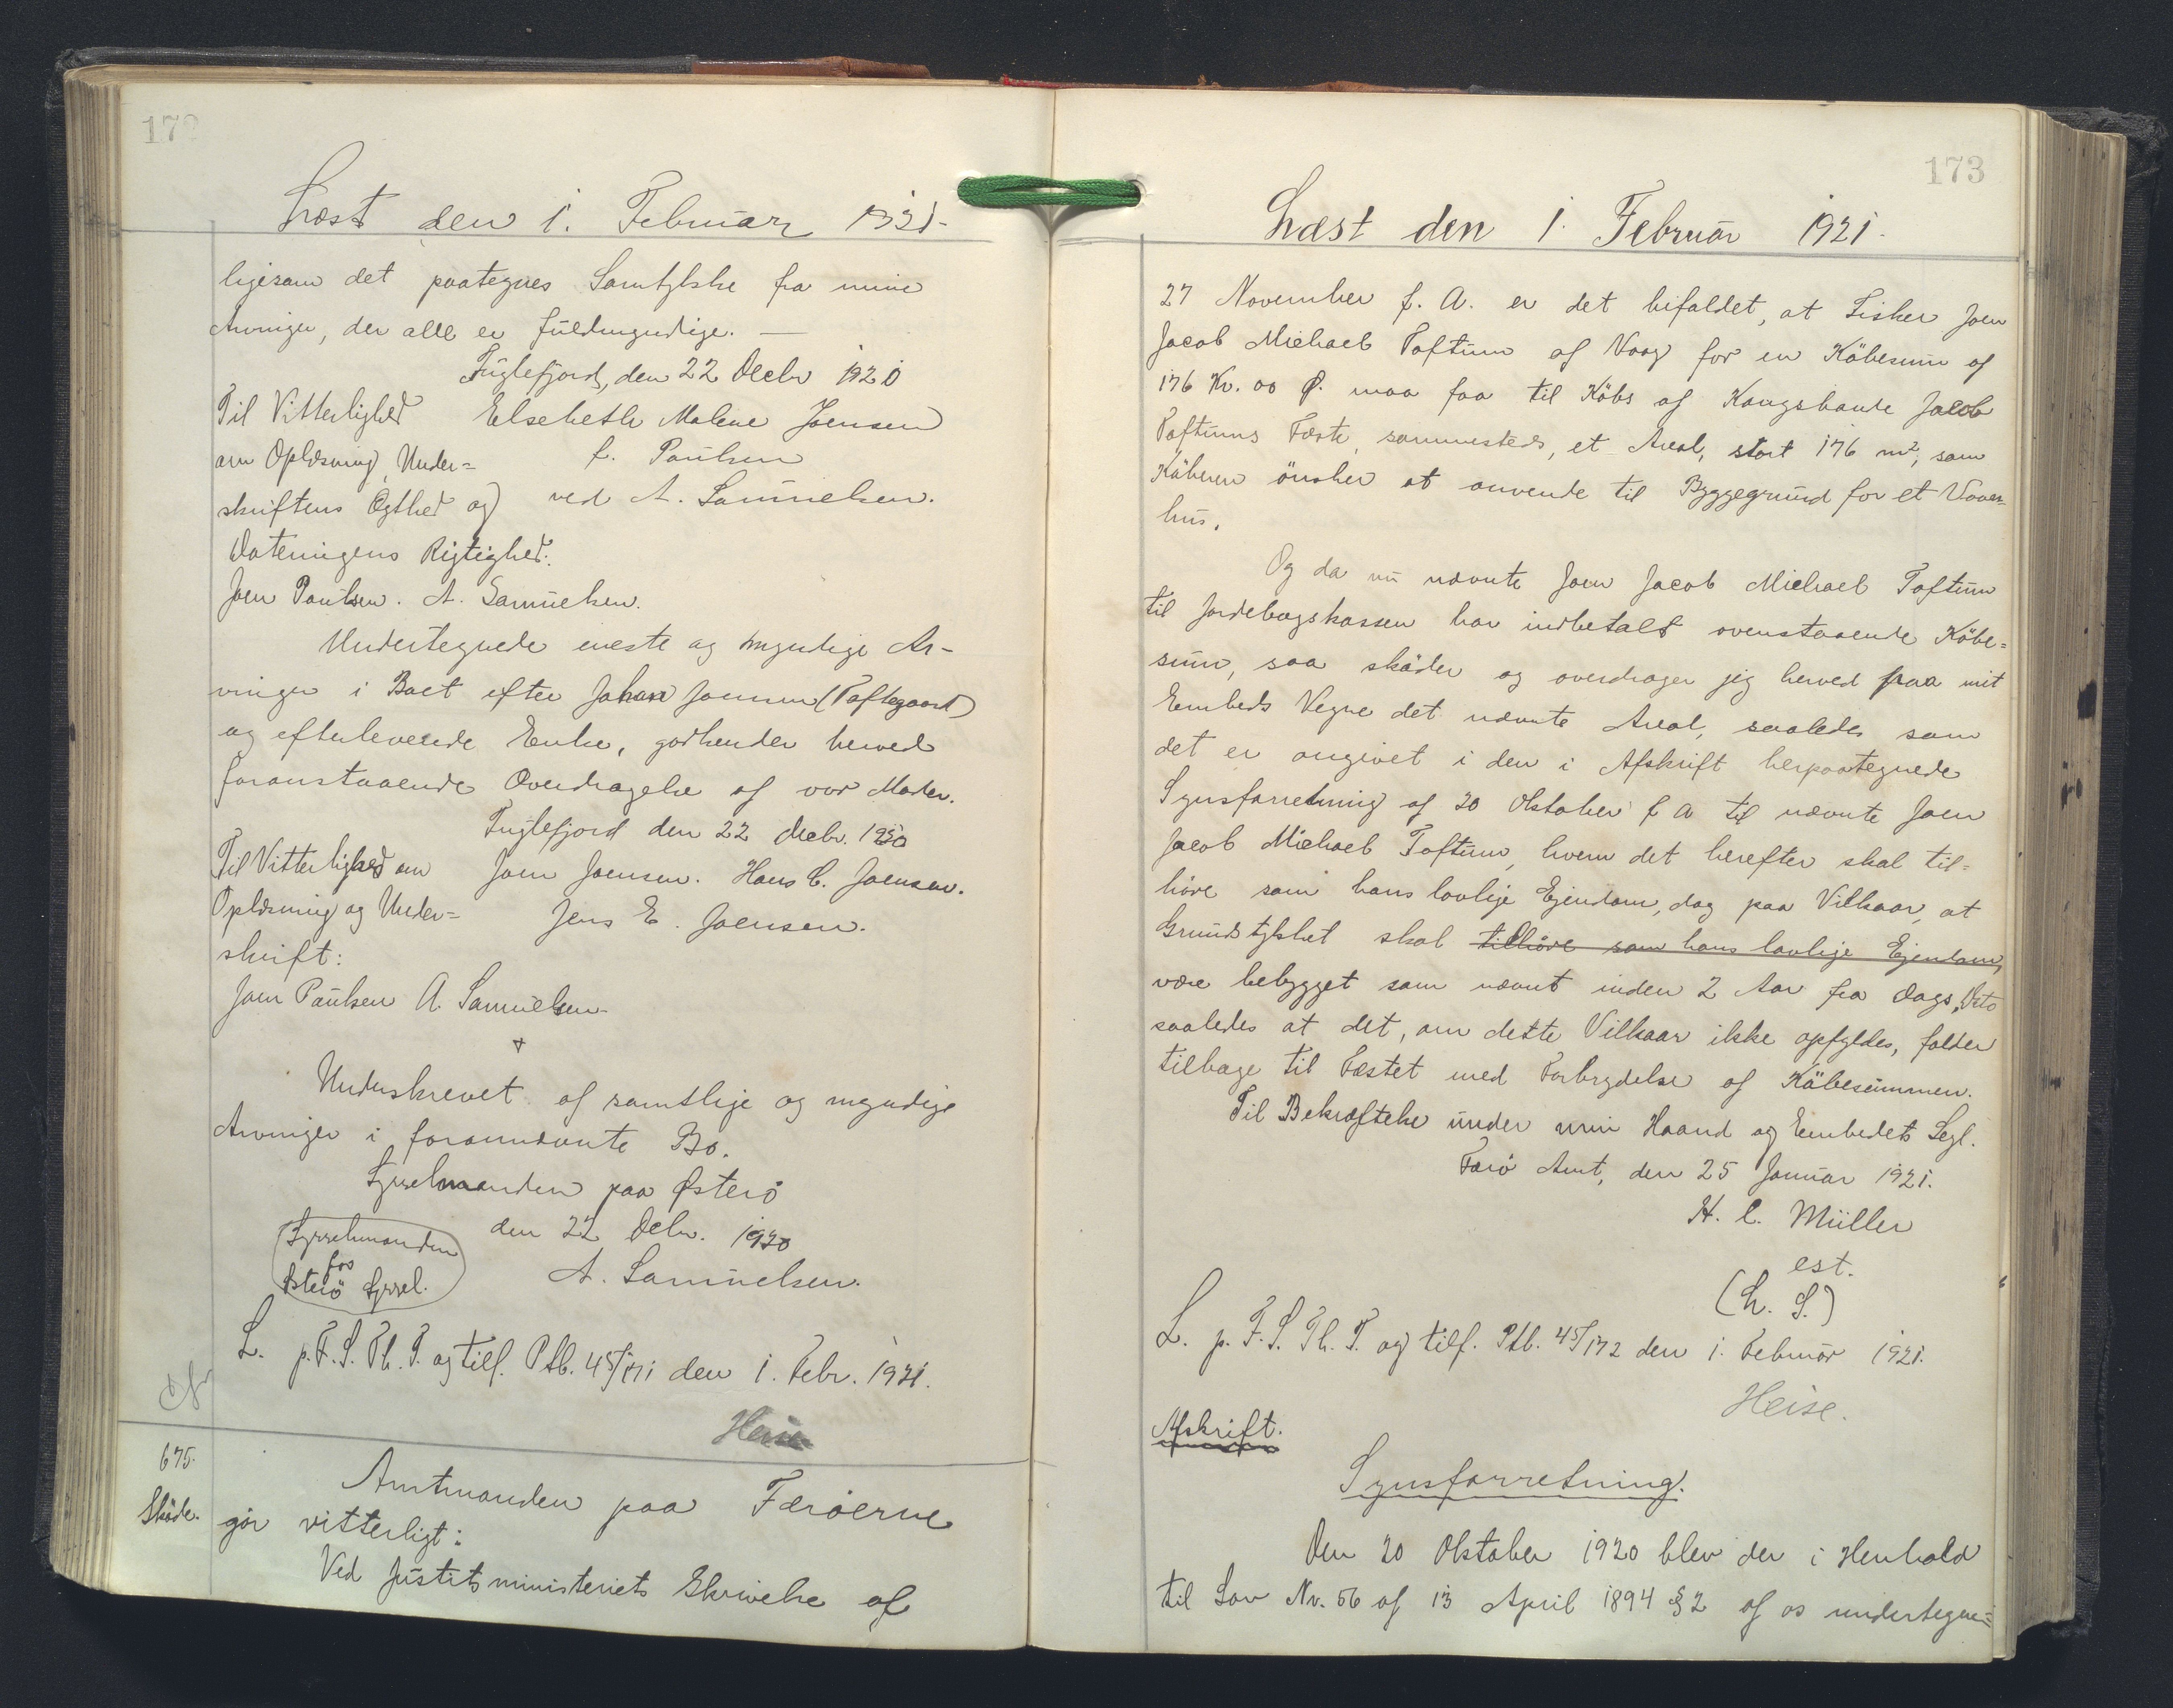 172
Læst den 1. Februar 1921-
ligesom det paategnes Samtykke fra mine
Arvinger, der alle er fuldmyndige. —
Fuglefjord, den 22 Decbr 1920
Til Vitterlighed Elsebeth Malene Joensen
om Oplæsning, Under= f. Paulsen
skriftens Ægthed og ved A. Samuelsen.
Dateringens Rigtighed:
Joen Paulsen. A. Samuelsen.
Undertegnede eneste og myndige Ar-
vinger i Boet efter Johan Joensen (Toftegaard)
og efterleverde Enke, godkender herved
foranstaaende Overdragelse af vor Moder.
Fuglefjord den 22 Decbr. 1920
Til Vitterlighed om Joen Joensen. Hans C. Joensen.
Oplæsning og Under= Jens E. Joensen.
skrift:
Joen Paulsen A. Samuelsen-
Underskrevet af samtlige og myndige
Arvinger i forannævnte Bo.
Sysselmanden paa Østerö
den 22 Decbr. 1920
Sysselmanden
for
Østerö Syssel.
A. Samuelsen.
L. p. F. S. Th. P. og tilf. Ptb. 45/171 den 1. Febr. 1921.
Heise
675.
Sköde.
Amtmanden paa Færöerne
gör vitterligt:
Ved Justitsministeriets Skrivelse af
173
Læst den 1. Februar 1921-
27 November f. A. er det bifaldet, at Fisker Joen
Jacob Michael Toftum af Vaag for en Köbesum af
176 Kr. 00 Ø. maa faa til Köbs af Kongsbonde Jacob
Toftums Fæste sammesteds, et Areal, stort 176 m², som
Köberen önsker at anvende til Byggegrund for et Vaanings=
hus.
Og da nu nævnte Joen Jacob Michael Toftum
til Jordebogskassen har indbetalt ovenstaaende Köbe=
sum, saa sköder og overdrager jeg herved paa mit
Embeds Vegne det nævnte Areal, saaledes som
det er angivet i den i Afskrift herpaategnede
Synsforretning af 20 Oktober f A til nævnte Joen
Jacob Michael Toftum, hvem det herefter skal til=
höre som hans lovlige Ejendom, dog paa Vilkaar, at
Grundstykket skal tilhöre som hans lovlige Ejendom,
være bebygget som nævnt inden 2 Aar fra Dags Dato
saaledes at det, om dette Vilkaar ikke opfyldes, falder
tilbage til Fæstet med Forbrydelse af Köbesummen.
Til Bekræftelse under min Haand og Embedets Segl.
Færö Amt, den 25 Januar 1921.
H. C. Müller
est.
(L. S.)
L. p. F. S. Th. P. og tilf. Ptb. 45/172 den 1. Februar 1921.
Heise.
Afskrift.
Synsforretning.
Den 20 Oktober 1920 blev der i Henhold
til Lov Nr. 56 af 13 April 1894 § 2 af os undertegne=